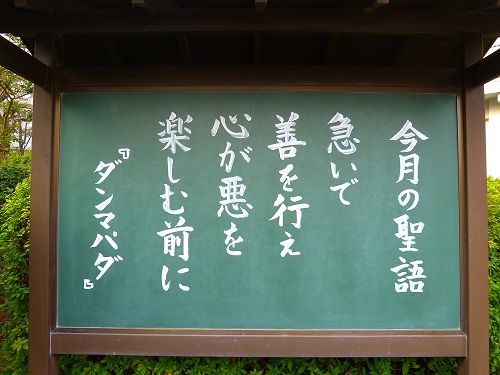 今月の聖語
急いで
善を行え
心が悪を
楽しむ前に
『ダンマパダ』